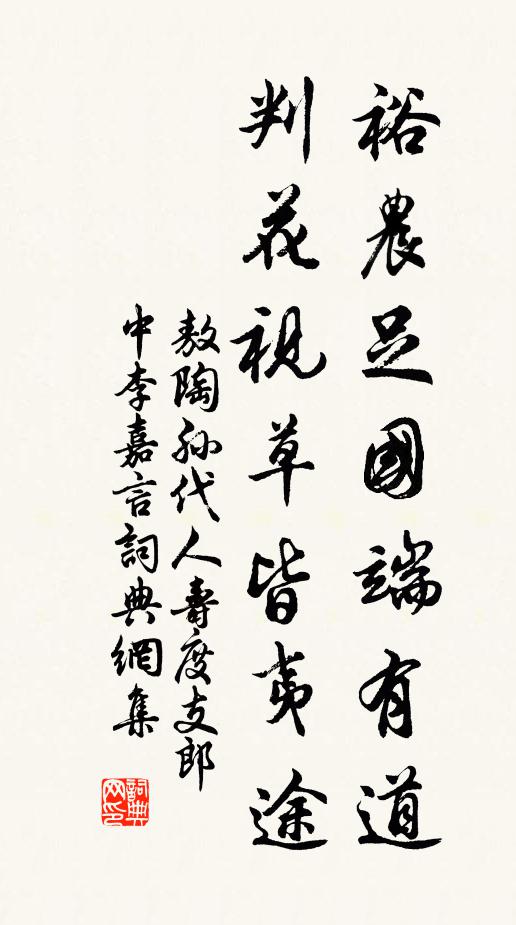 裕農足國端有道
判花視草皆夷途
敖陶孫代人壽度支郎
中李嘉言詞典網集
詞典网印